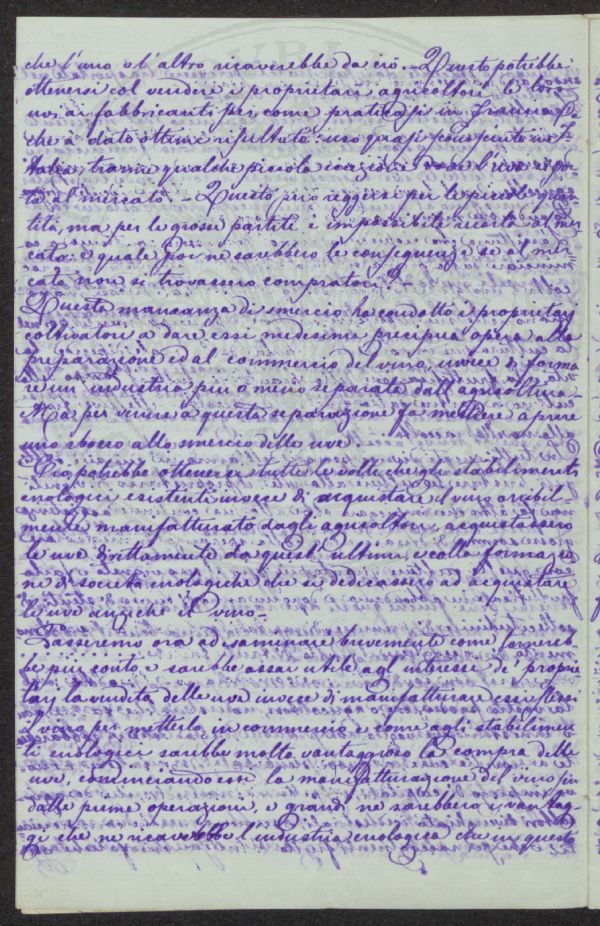 che l'uno e l'altro ricaverebbe da ciò. - Questo potrebbe
ottenersi col vendere i proprietari agricoltori le loro
uve ai fabbricanti per come praticasi in Francia
che à dato ottimi risultati: uso quasi
Italia, tranne qualche piccola eccezione
al mercato. - Questo può reggersi per le piccole quan-
tità, ma per le grosse partite è impossibile al mer-
cato: e quale poi ne sarebbero le conseguenze se al mer-
cato non si trovassero compratori? -
Questa mancanza di smercio ha condotto i proprietarj
coltivatori a dare essi medesimi precipua opera alla
preparazione ed al commercio del vino, invece di forma
re un' industria più o meno separata dall'agricoltura -
Ma per venire a questa separazione fa mestiere aprire
uno sbocco allo smercio delle uve.
Ciò potrebbe ottenersi tutte le volte che gli stabilimenti
enologici esistenti invece di acquistare il vino orribil-
mente manifatturato dagli agricoltori, acquistassero
le uve direttamente da quest' ultimi, e colla formazio
ne di società enologiche che si dedicassero ad acquistare
le uve anziché il vino -
Passeremo ora ad esaminare brevemente come tornereb
be più conto, e sarebbe assai utile agl' interessi de' proprie
tarj la vendita delle uve invece di manifatturare essi stessi
il vino per metterlo in commercio e come agli stabilimen
ti enologici sarebbe molto vantaggioso la compra delle
uve, cominciando essi la manifatturazione del vino fin
dalle prime operazioni, e grandi ne sarebbero i vantag-
gi che ne ricaverebbe l'industria enologica che in questo